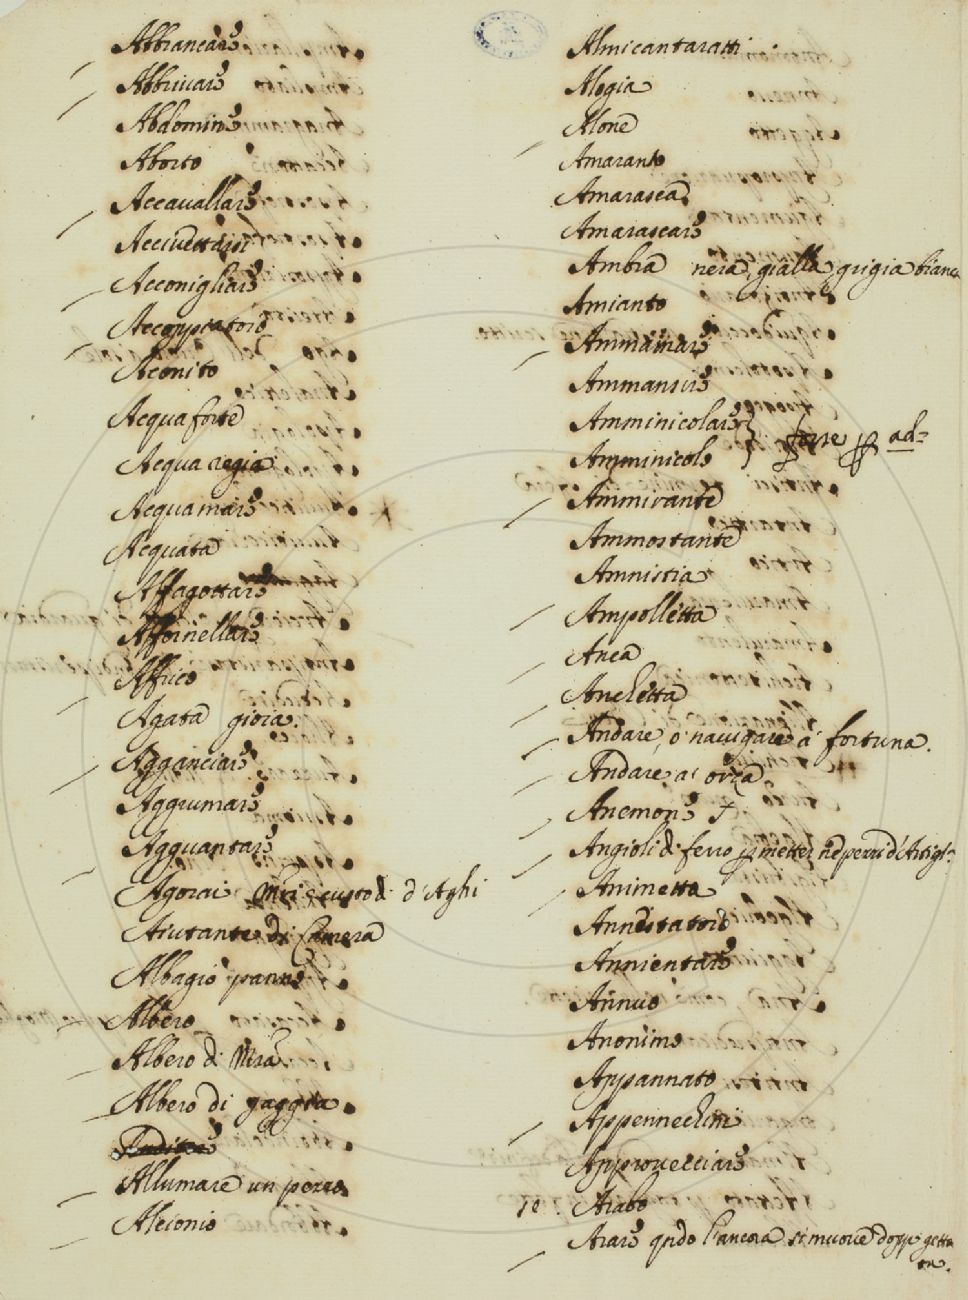 Abbrancare
Abbrivare
Abdomine
Aborto
Accavallare
Accivettarsi
Acconigliare
Accoppiatore
Aconito
Acqua forte
Acqua regia
Acquamare
Acquata
Affagottare
Affornellare
Affrico
Agata gioia.
Agganciare
Aggrumare
Agguantare
Agorai custodi d'Aghi
Aiutante di Camera
Albagio panno
Albero
Albero di Mra
Albero di gaggia
Allumare un pezzo
Alcionio
Almicantaratti
Alogia
Alone
Amaranto
Amarasca
Amarascare
Ambra nera, gialla grigia bianca
Amianto
Ammainare
Ammansire
Amminicolare
Amminicolo } forse ad=
Ammirante
Ammostante
Amnistia
Ampolletta
Anca
Anchetta
Andare, o navigare à fortuna.
Andare a' orza
Anemone +
Angioli di ferro
Animetta
Annestatore
Annientare
Annuo
Anonimo
Appannato
Appennechini
Approvecciare
Arabo
Arare qndo l'ancora si muove doppo getta
ta.